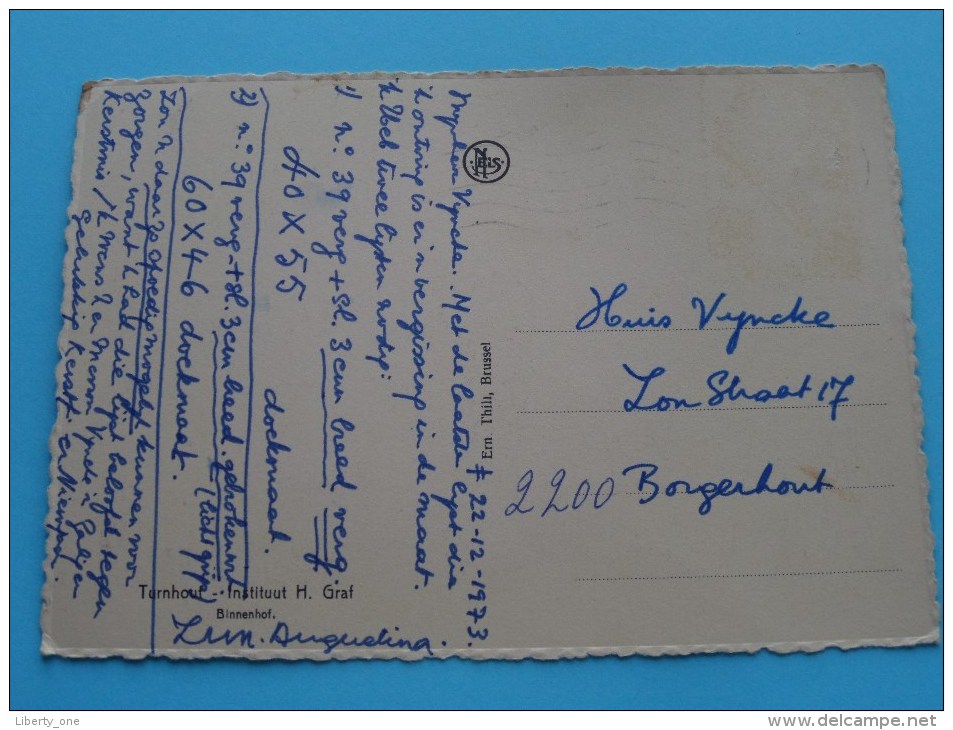 ≠ 22-12-1973.
Mijnheer Vyncke. Met de laatste lijst die
'k ontving is er 'n vergissing in de maat.
'k Heb twee lijsten nodig:
1) n.° 39 verg + Sl. 3 cm breed verg.
40 X 55 dockmaat.
2) n.° 39 verg + Sl. 3 cm breed. gebroken wit
60 X 46 dockmaat. (licht grijs)
Zou U daar zo spoedig mogelijk kunnen voor
zorgen, want 'k had die lijst beloofd tegen
Kerstmis / 'k Wens U en Mevrouw Vyncke 'n Zalige en
Gelukkig Kerstf. en Nieuwjaar.
Zuster Augustina.
Turnhout - Instituut H. Graf
Binnenhof.
NELS
Ern. Thill, Brussel
Huis Vyncke
Lon Straat 17
2200 Borgerhout
Liberty_one
www.delcampe.net